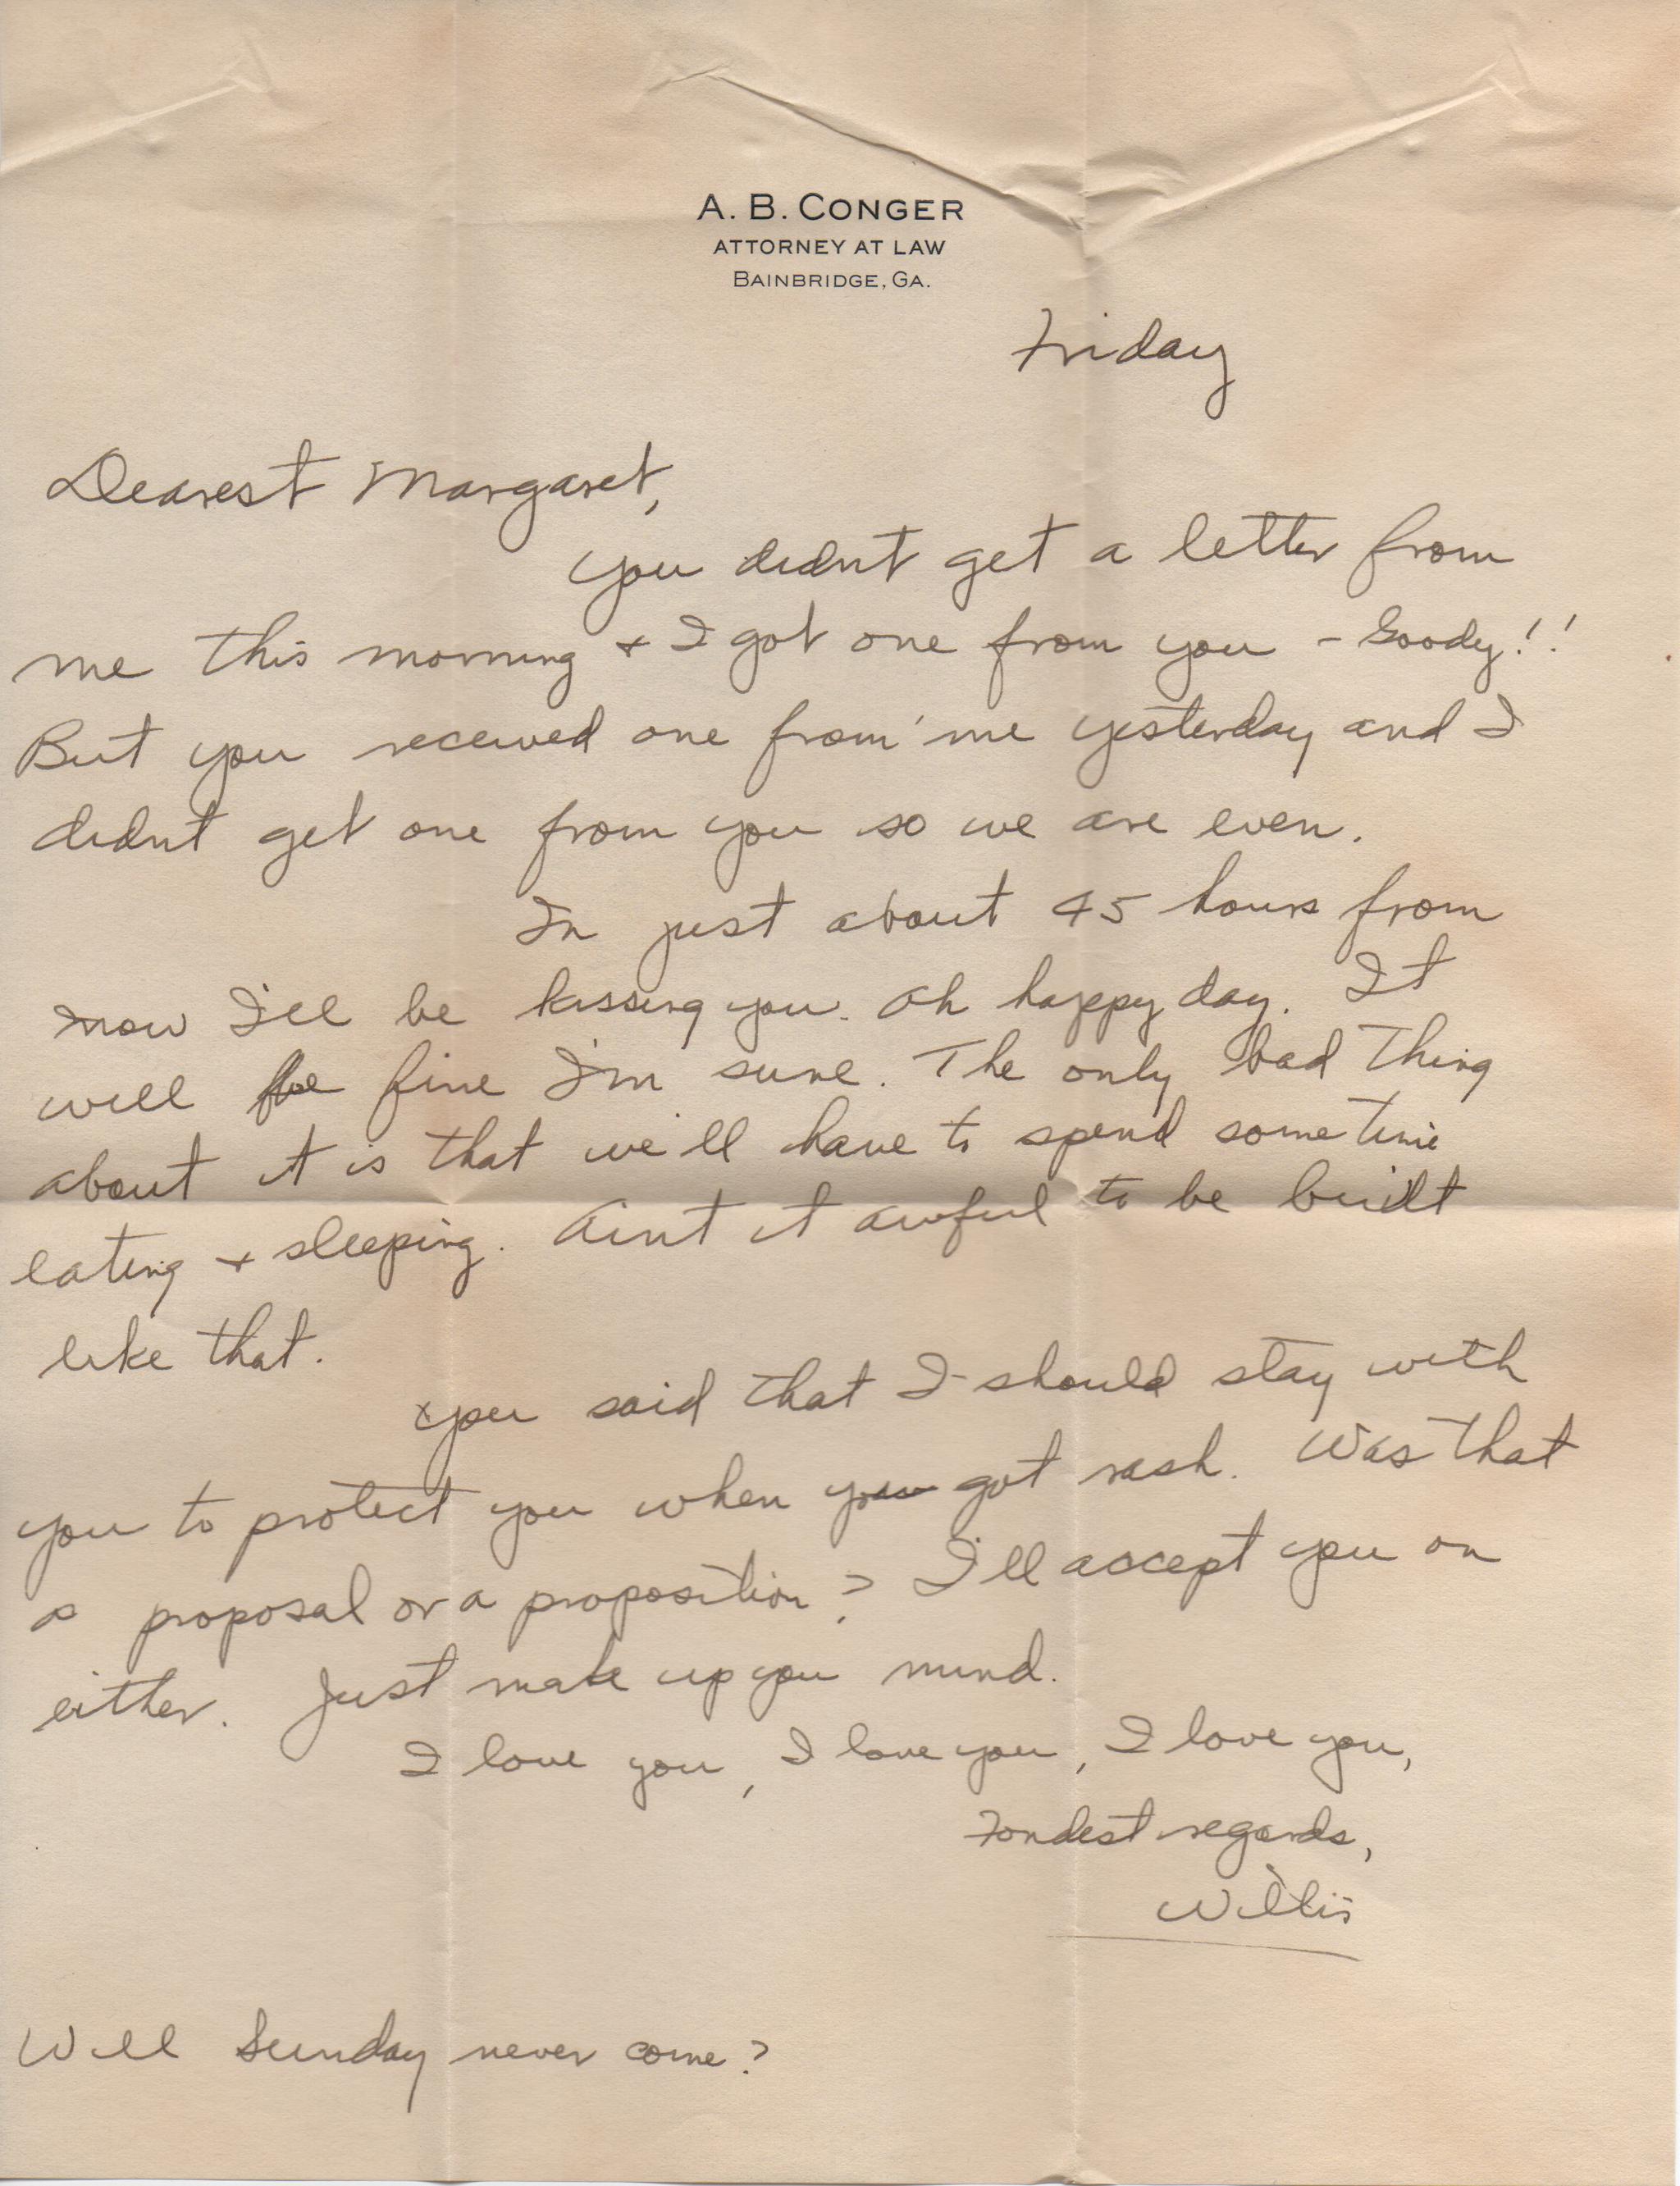 A. B. CONGER
ATTORNEY AT LAW
BAINBRIDGE, GA.
Friday
Dearest Margaret,
You didnt get a letter from
me this morning + I got one from you - Goody!!
But you received one from me yesterday and I
didnt get one from you so we are even.
In just about 45 hours from
now I'll be kissing you. Oh happy day. It
will be fine I'm sure. The only bad thing
about it is that we'll have to spend some time
eating + sleeping. Aint it awful to be built
like that.
You said that I should stay with
you to protect you when you got rash. Was that
a proposal or a proposition? I'll accept you on
either. Just make up you mind.
I love you, I love you, I love you,
Fondest regards,
Willis
Will Sunday never come?